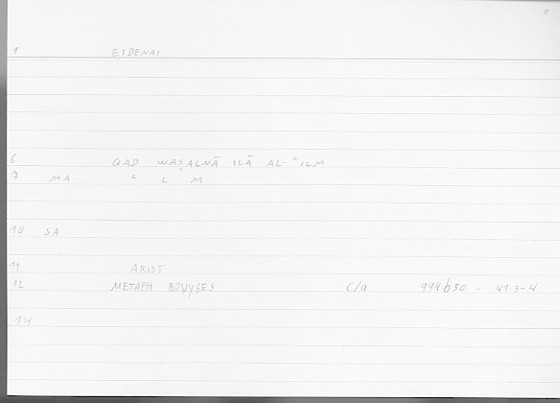 2
1 EIDENAI
6 QAD WAṢALNĀ ILĀ AL-ʿILM
7 MA ʿ L M
10 SA
11 ARIST
12 METAPH BOUYGES C/a 994b30 . 41.3-4
14